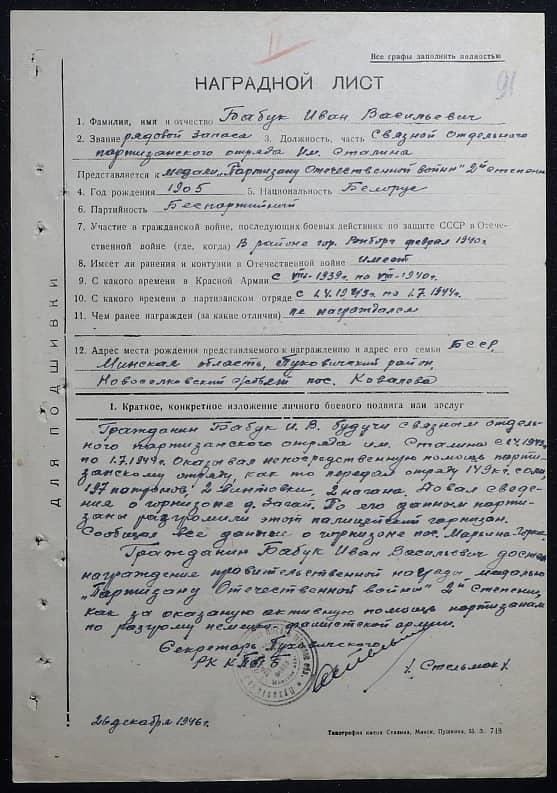 II
Все графы заполнять полностью
91
НАГРАДНОЙ ЛИСТ
1. Фамилия, имя и отчество Бабук Иван Васильевич
2. Звание рядовой запаса 3. Должность, часть Связной отдельного
партизанского отряда им. Сталина
Представляется к медали "Партизану Отечественной войны" 2й степени
4. Год рождения 1905 5. Национальность Белорус
6. Партийность Беспартийный
7. Участие в гражданской войне, последующих боевых действиях по защите СССР в Отече-
ственной войне (где, когда) В районе гор. Выборг февраль 1940г.
8. Имеет ли ранения и контузии в Отечественной войне имеет
9. С какого времени в Красной Армии с VIII-1939г. по VII-1940г.
10. С какого времени в партизанском отряде с 1.4.1943г. по 1.7.1944г.
11. Чем ранее награжден (за какие отличия) не награждался
12. Адрес места рождения представляемого к награждению и адрес его семьи БССР,
Минская область, Пуховичский район,
Новоселковский с/совет пос. Ковалева
ДЛЯ ПОДШИВКИ
1. Краткое, конкретное изложение личного боевого подвига или заслуг
Гражданин Бабук И.В. будучи связным отдель-
ного партизанского отряда им. Сталина с 1.4.1943г.
по 1.7.1944г. Оказывал непосредственную помощь парти-
занскому отряду, как то передал отряду 149кг. соли,
197 патронов, 2 винтовки, 2 нагана. Давал сведе-
ния о горнизоне д. Загай. По его данным парти-
заны разгромили этот полицейский гарнизон.
Сообщал все данные о горнизоне пос. Марьина Горка.
Гражданин Бабук Иван Васильевич достоин
награждение правительственной награды медалью
"Партизану Отечественной войны" 2й степени,
как за оказаную активную помощь партизанам
по разгрому немецко-фашистской армии.
Секретарь Пуховичского
РК КП(б)Б
/Стельмах/
26 декабря 1946г.
Типография имени Сталина, Минск, Пушкина, 55. З. 748